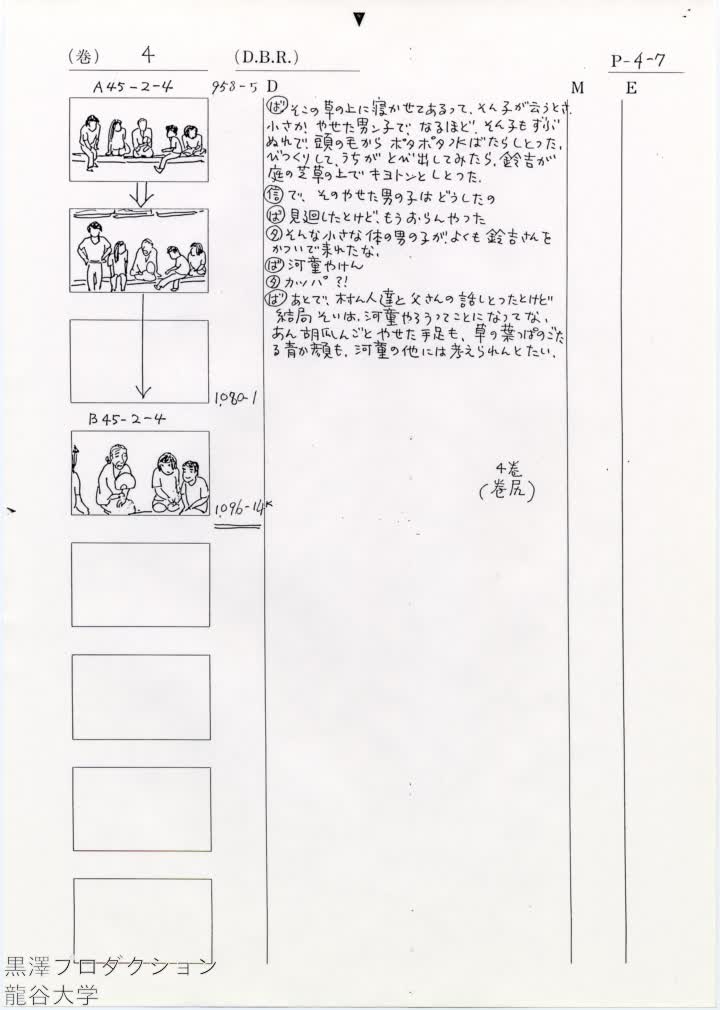 (巻) 4 (D.B.R.) P-4-7
A45-2-4 958-5 D M E
(ば) そこの草の上に寝かせてあるって、そん子が云うとさ
小さか やせた男ン子で、なるほど、そん子も ずぶ
ぬれで、頭の毛から ポタポタ水ばたらしとった、
びっくりして、うちが とび出してみたら、鈴吉が
庭の芝草の上で キョトンとしとった。
(信) で、そのやせた男の子は どうしたの
(ば) 見廻したとけど、もう おらんやった
(タ) そんな小さな体の男の子が、よくも 鈴吉さんを
かついで来れたな、
(ば) 河童やけん
(タ) カッパ?!
(ば) あとで、村ん人達と 父さんの 話しとったとけど
結局 そいは、河童やろうってことに なってな、
あん 胡瓜んごと やせた手足も、草の葉っぱのごた
る青か顔も、河童の他には考えられんとたい、
1080-1
B45-2-4
1096-14K
4巻
(巻尻)
黒澤プロダクション
龍谷大学